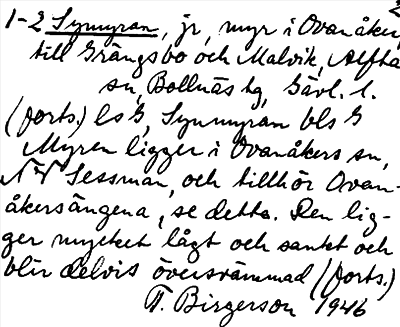 1-2 Synmyran, jr, myr i Ovanåker,
till Grängsbo och Malvik, Alfta
sn, Bollnäs tg, Gävl. l.
(forts.) ls G, Synmyran bls G
Myren ligger i Ovanåkers sn,
NV Sessman, och tillhör Ovan-
åkersängena, se detta. Den lig-
ger mycket lågt och sankt och
blir delvis översvämmad (forts.)
T. Birgerson 1946